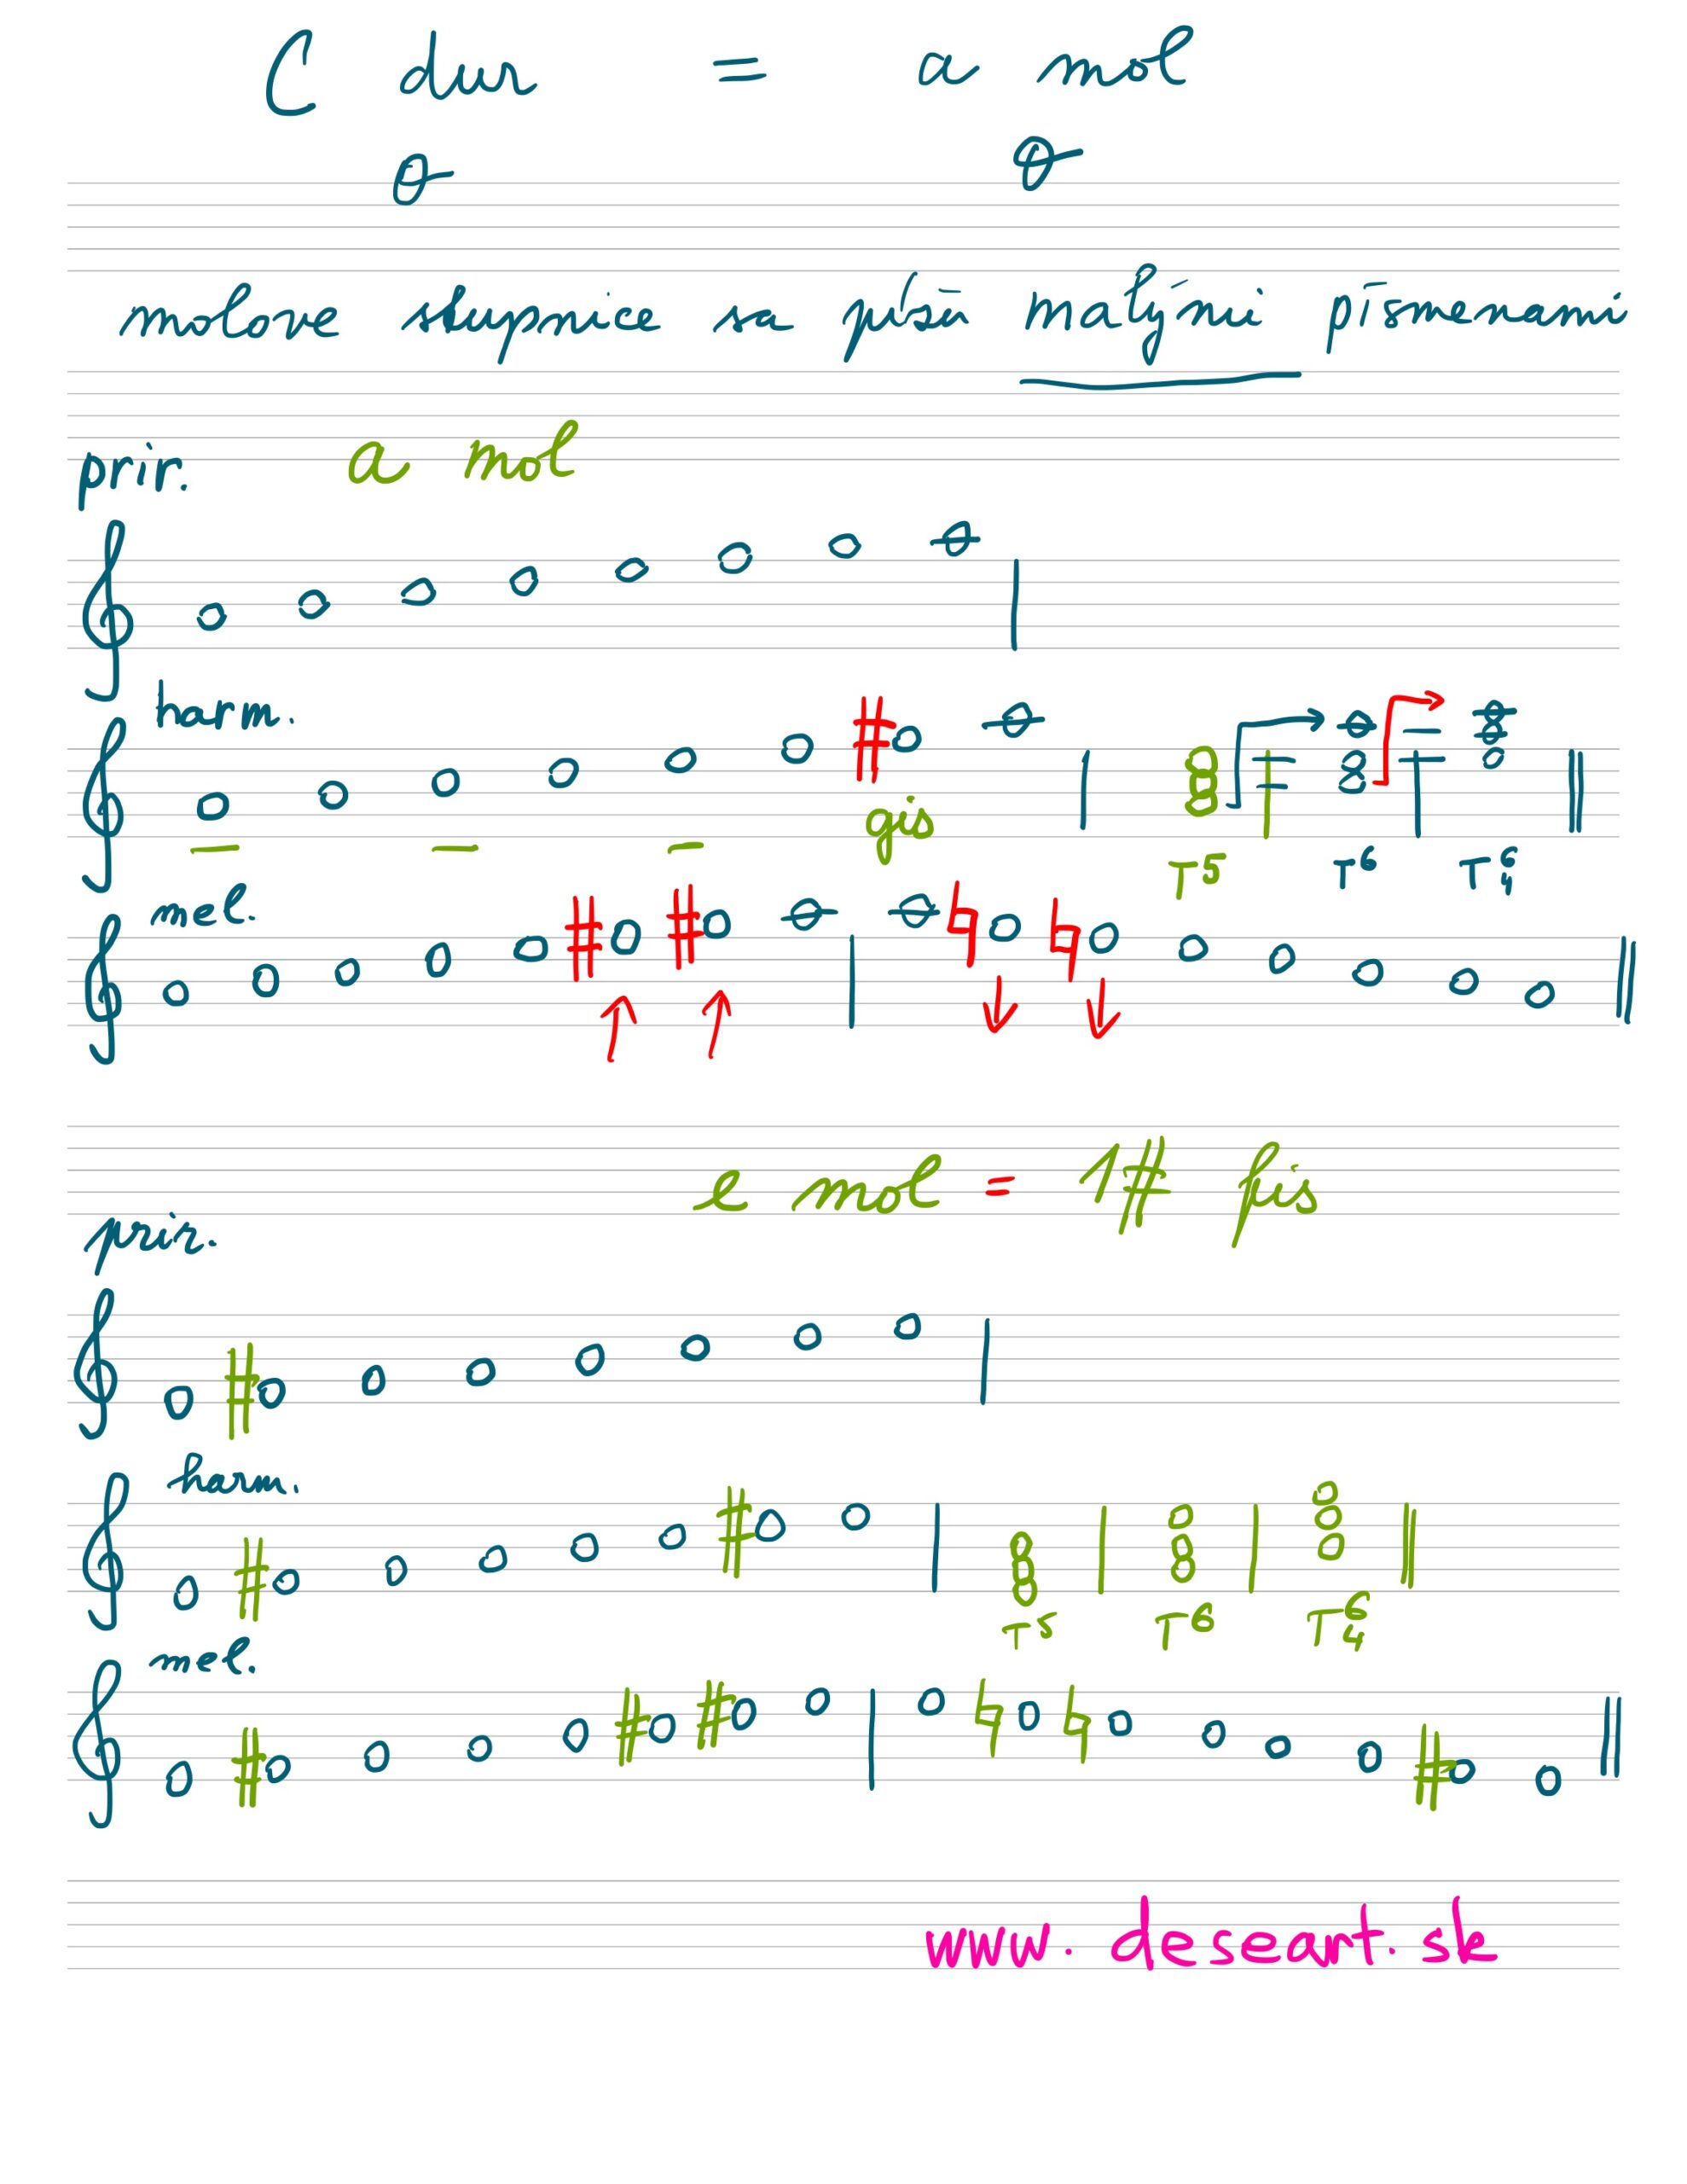 C dur = a mol
molové stupnice sa píšu malými písmenami
prir. a mol
harm.
gis
T5 T6 T6 4
mel.
e mol = 1# fis
prir.
harm.
T5 T6 T6 4
mel.
www.descant.sk